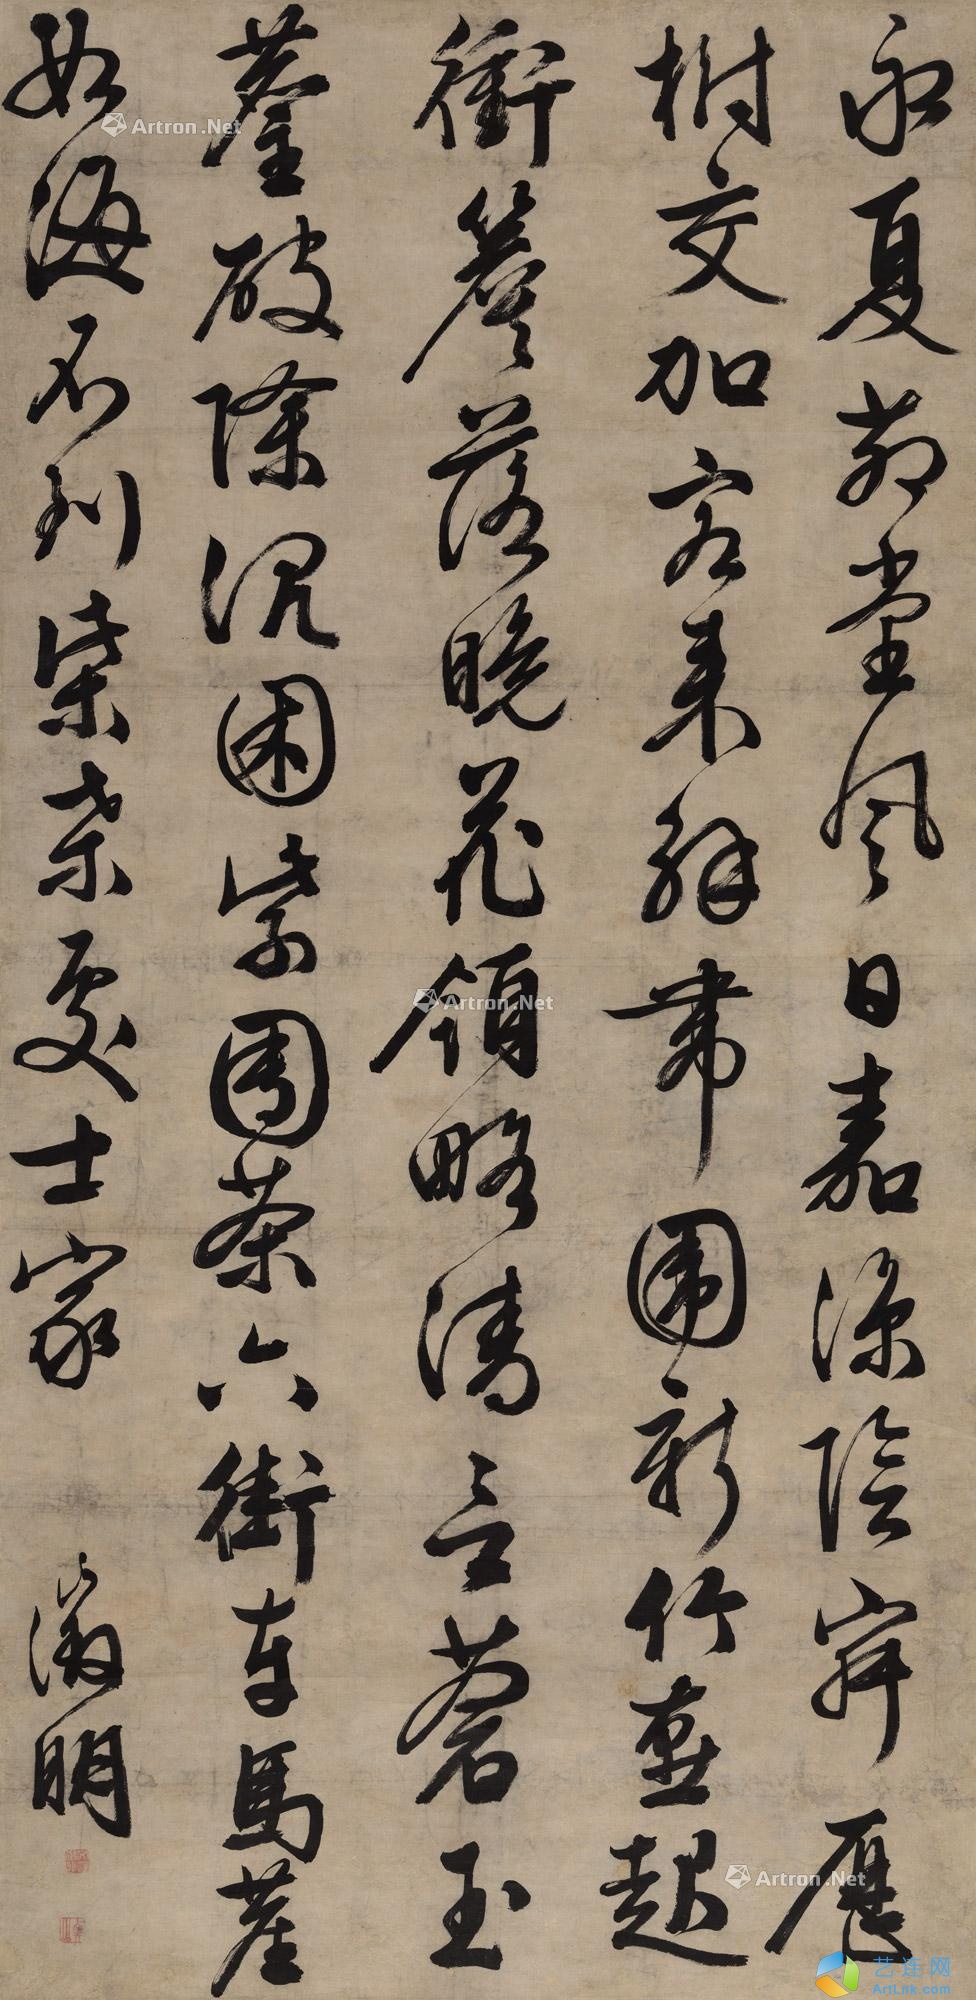 永夏茆堂風日嘉涼陰寂歷
樹交加客來解帶圍新竹燕起
衝簷落晚花領略清言蒼玉
麈破除沉困紫團茶六街車馬塵
如海不到柴桑處士家 徵明
Artron.Net
Artron.Net
Artron.Net
艺连网
ArtLnk.com